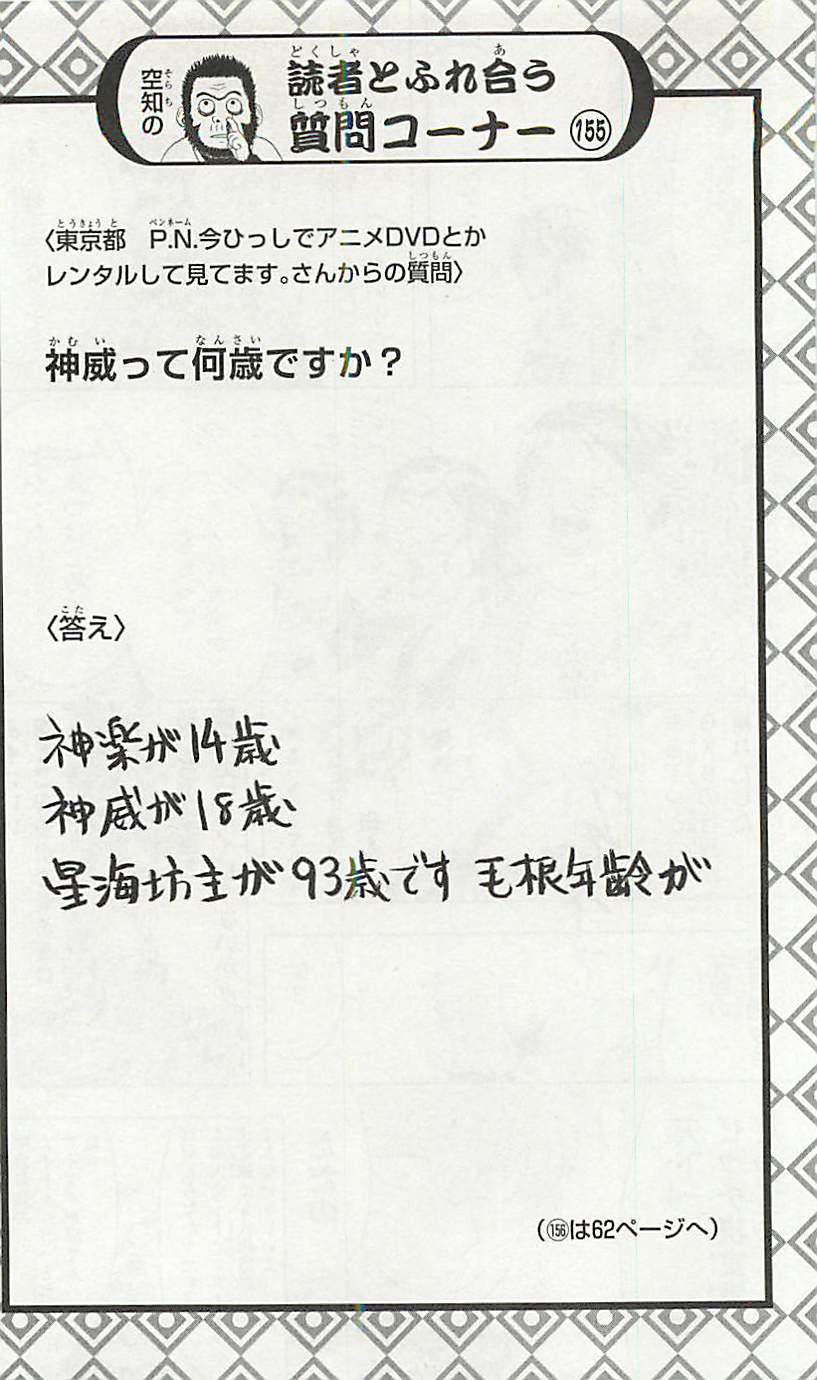 空知の
読者とふれ合う
質問コーナー 155
〈東京都 P.N.今ひっしでアニメDVDとか
レンタルして見てます。さんからの質問〉
神威って何歳ですか？
〈答え〉
神楽が14歳
神威が18歳
星海坊主が93歳です 毛根年齢が
(156は62ページへ)